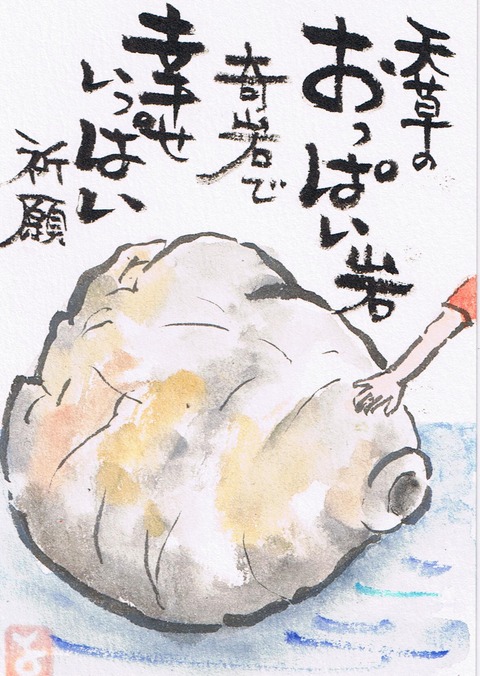 天草の
おっぱい岩
奇岩で
幸せ
いっぱい
祈願
そ